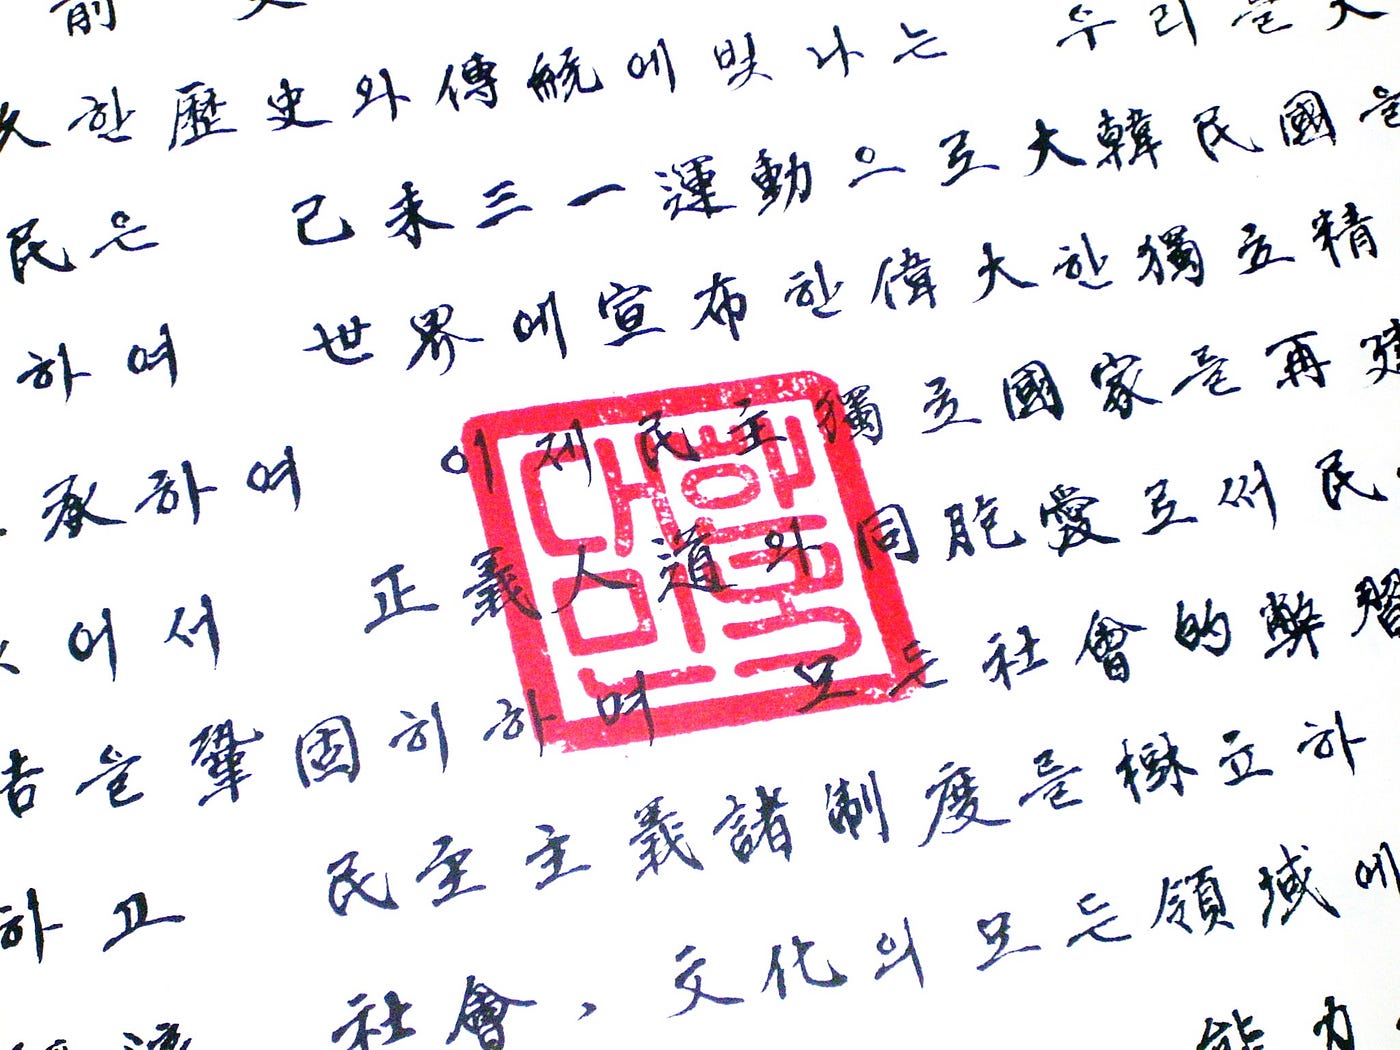 前
久한歷史와傳統에빛나는 우리들
民은 己未三一運動으로大韓民國을
하여 世界에宣布한偉大한獨立精
承하여 이제民主獨立國家를再建
어서 正義人道와同胞愛로써民
을鞏固히하며 모든社會的弊習
하고 民主主義諸制度를樹立하
社會、文化의모든領域에
能力
대한
민국